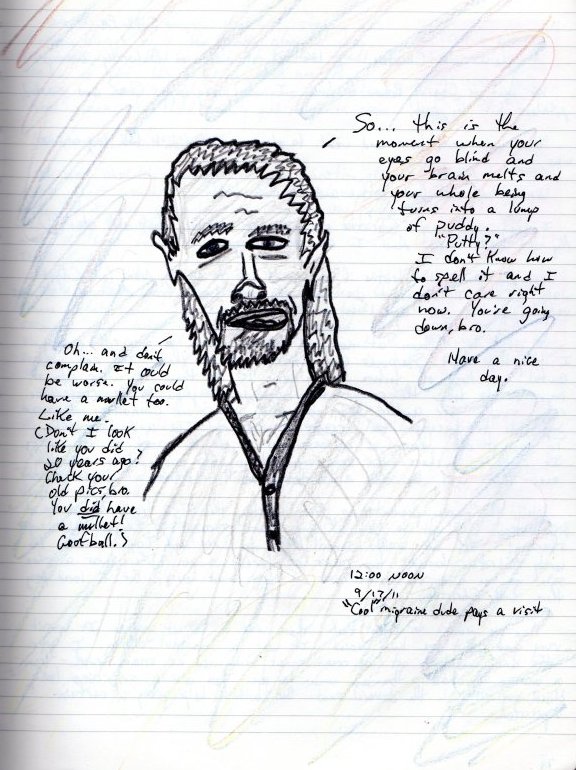 So... this is the
moment when your
eyes go blind and
your brain melts and
your whole being
turns into a lump
of puddy.
"Putty?"
I don't know how
to spell it and I
don't care right
now. You're going
down, bro.
Have a nice
day.
Oh... and don't
complain. It could
be worse. You could
have a mullet too.
Like me.
(Don't I look
like you did
20 years ago?
Check your
old pics, bro.
You did have
a mullet!
Goofball.)
12:00 NOON
9/17/11
"Cool" migraine dude pays a visit